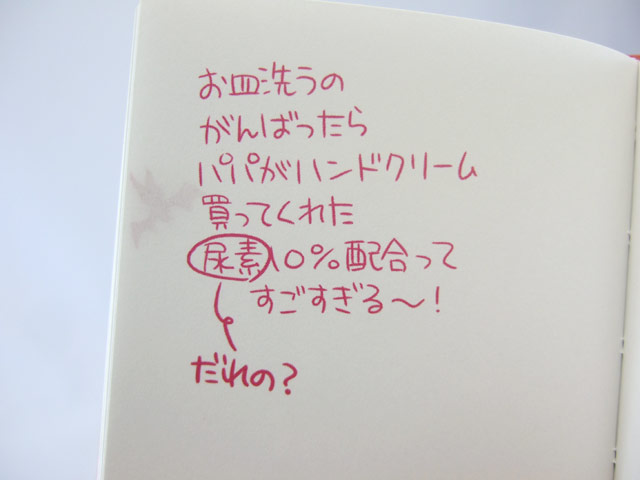 お皿洗うの
がんばったら
パパがハンドクリーム
買ってくれた
尿素10%配合って
すごすぎる〜!
だれの?